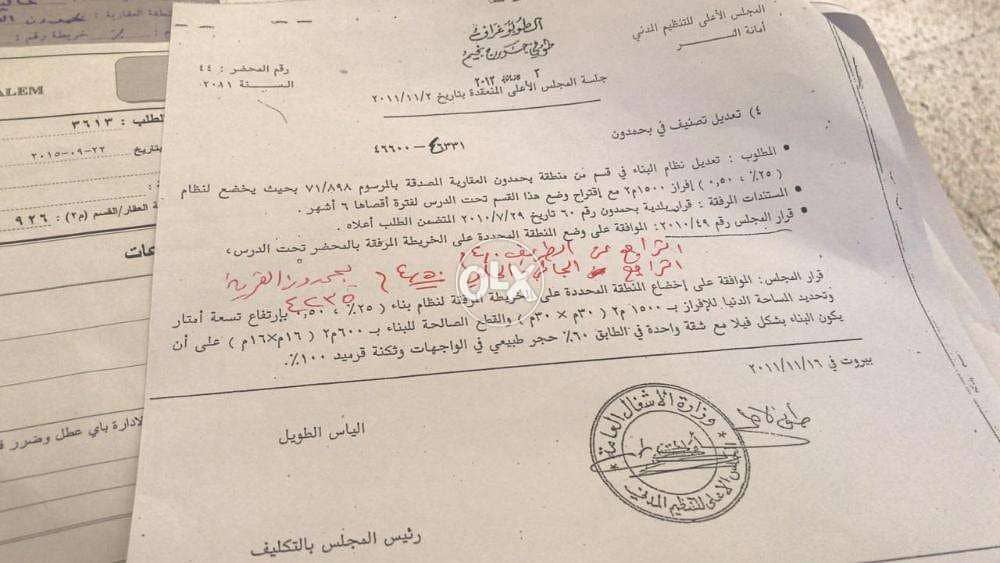 المجلس الأعلى للتنظيم المدني
أمانة الســـر
رقم المحضر : ٤٤
السـنة ٢٠١١
جلسة المجلس الأعلى المنعقدة بتاريخ ٢٠١١/١١/٢
٤) تعديل تصنيف في بحمدون
٤٦٦٠٠ - ٤٦٣٣١
• المطلوب : تعديل نظام البناء في قسم من منطقة بحمدون العقارية المصدقة بالمرسوم ٧١/٨٩٨ بحيث يخضع لنظام
( ٢٥٪ ، ٠,٥٠ ) إفراز ١٥٠٠م٢ مع إقتراح وضع هذا القسم تحت الدرس لفترة أقصاها ٦ أشهر .
• المستندات المرفقة : قرار بلدية بحمدون رقم ٦٠ تاريخ ٢٠١٠/٧/٢٩ المتضمن الطلب أعلاه .
• قرار المجلس رقم ٢٠١٠/٤٩: الموافقة على وضع المنطقة المحددة على الخريطة المرفقة بالمحضر تحت الدرس،
التراجع عن الطريق
التراجع
٤٢٣٥
قرار المجلس: الموافقة على إخضاع المنطقة المحددة على الخريطة المرفقة لنظام بناء ( ٢٥٪ ، ٠,٥٠ ) بإرتفاع تسعة أمتار
وتحديد المساحة الدنيا للإفراز بـ ١٥٠٠ م٢ ( ٣٠م × ٣٠م ) والقطع الصالحة للبناء بـ ٦٠٠م٢ ( ١٦م×١٦م ) على أن
يكون البناء بشكل فيلا مع شقة واحدة في الطابق ٦٠٪ حجر طبيعي في الواجهات وثكنة قرميد ١٠٠٪.
بيروت في ٢٠١١/١١/١٦
وزارة الاشغال العامة
المجلس الاعلى للتنظيم المدني
الياس الطويل
رئيس المجلس بالتكليف
OLX
ALEM
الطلب : ٣٦١٣
بتاريخ ٢٢-٠٩-٢٠١٥
العقار/القسم (م٢) : ٩٢٦
خريطة رقم :
لادارة باي عطل وضرر